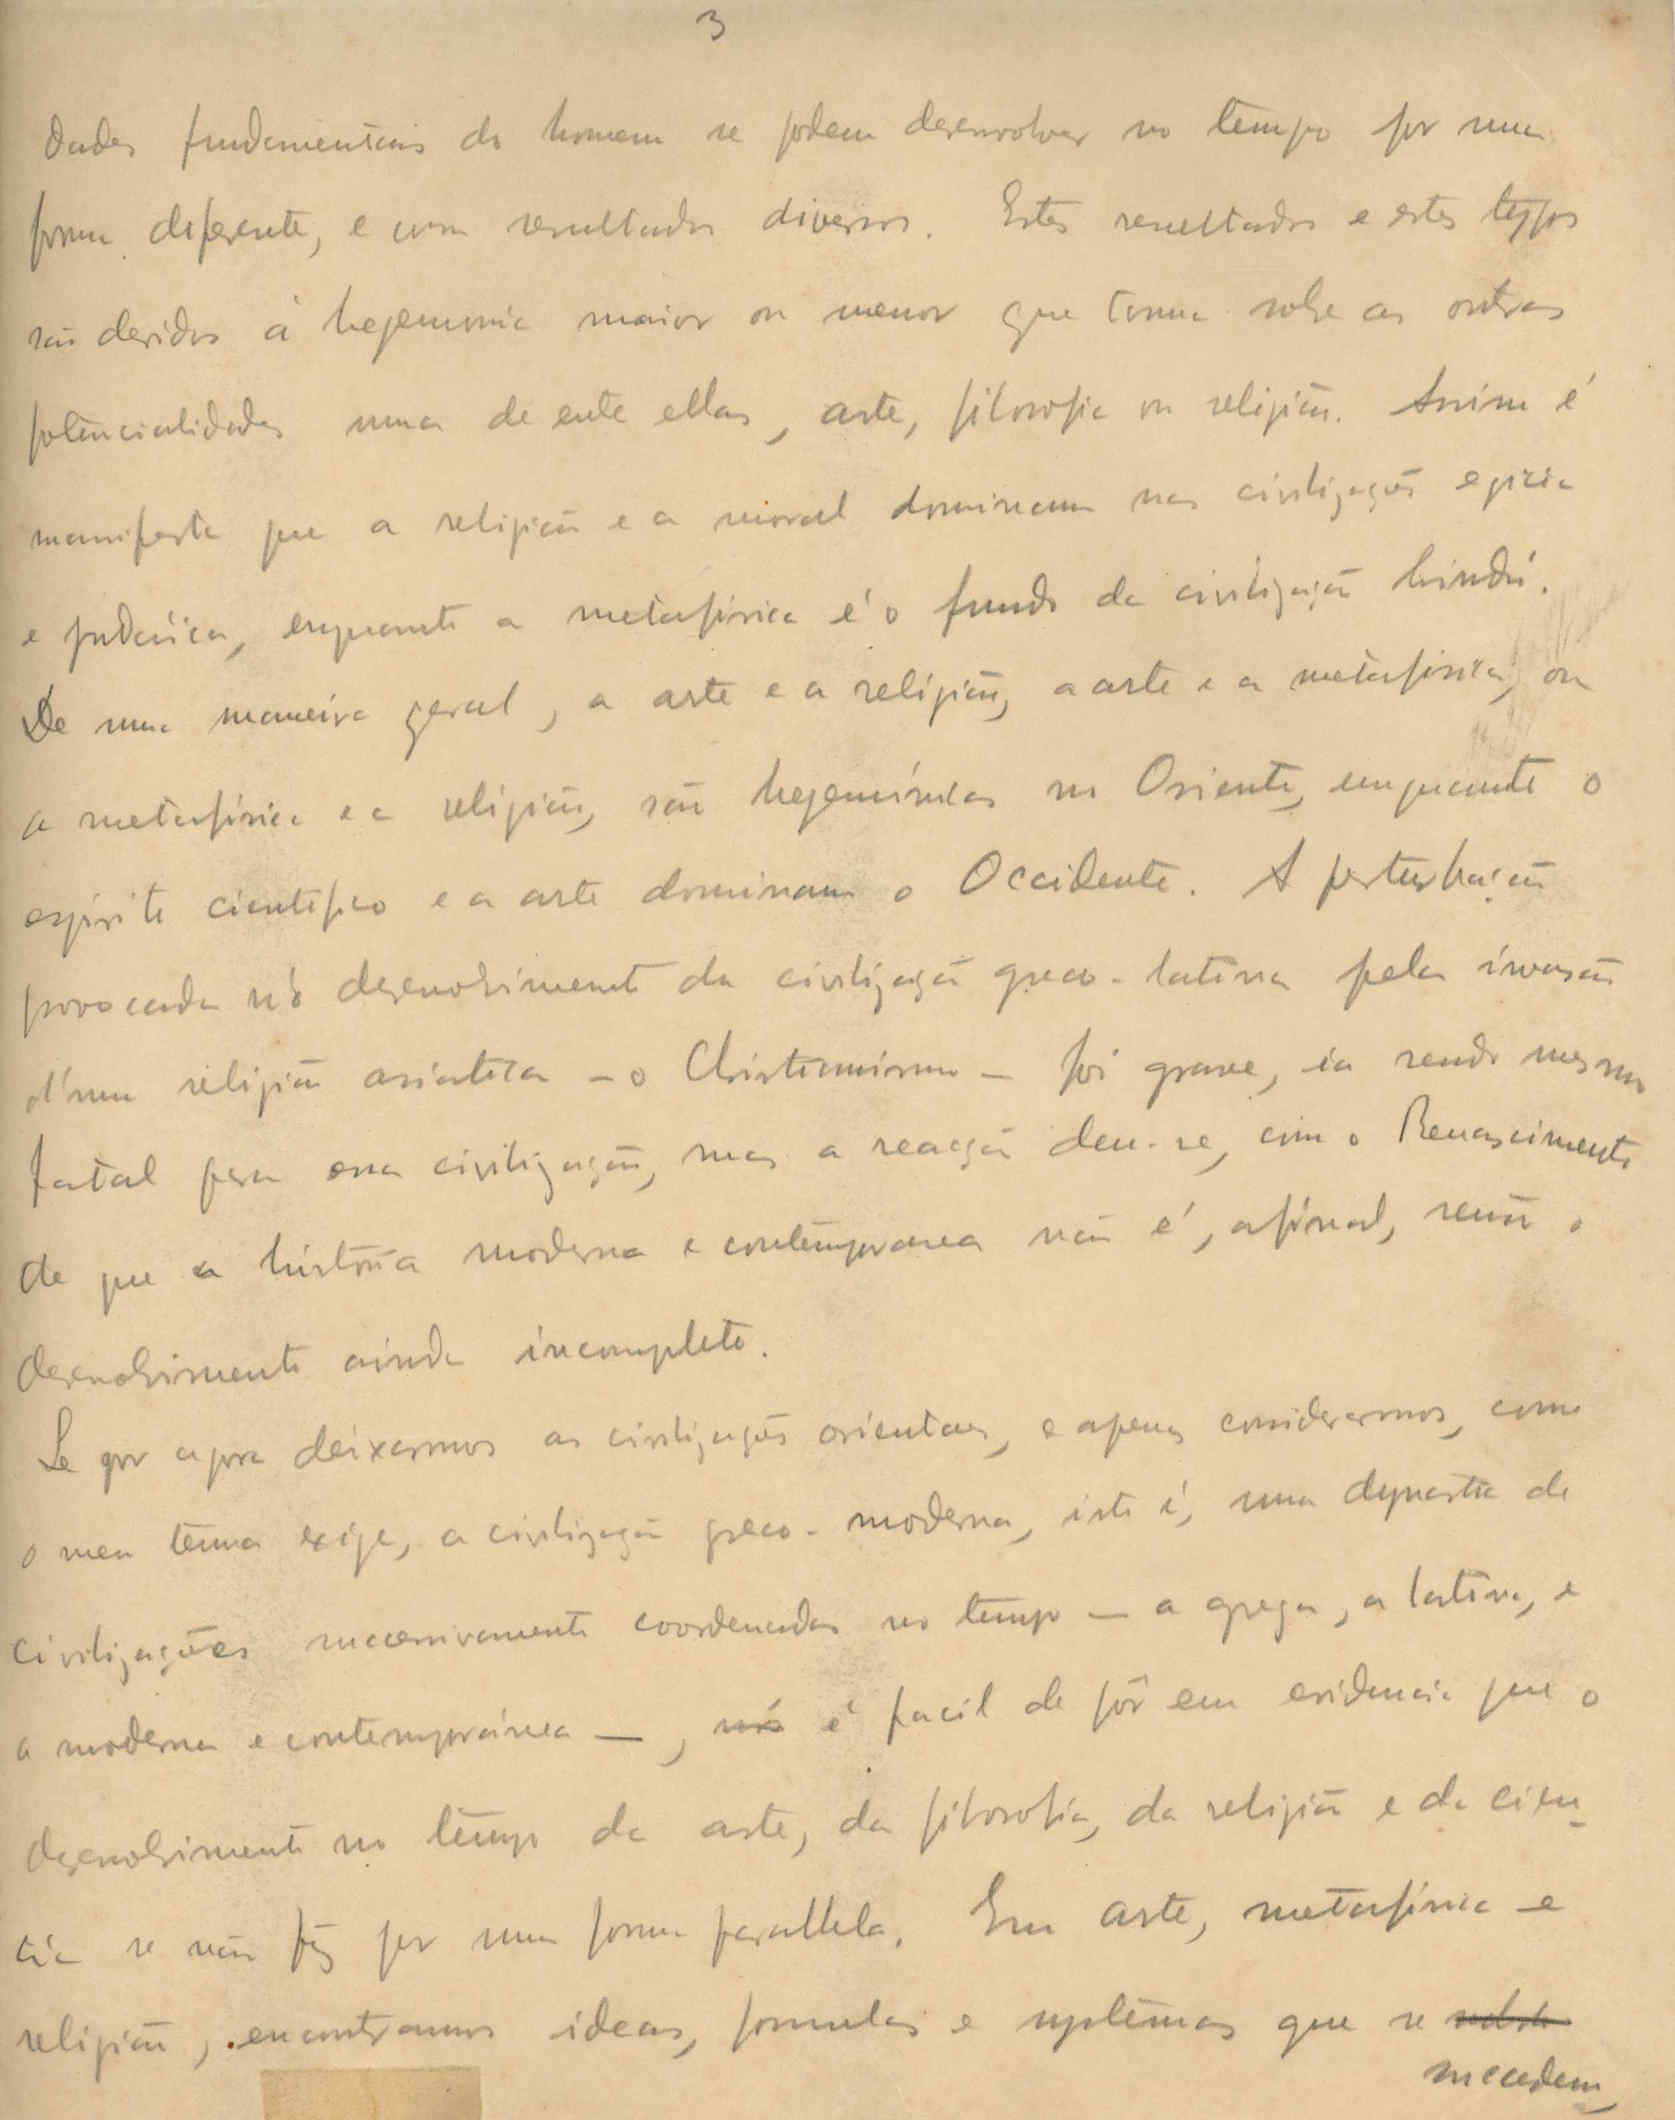 3
dades fundamentaes do homem se podem desenvolver no tempo por uma
forma differente, e com resultados diversos. Estes resultados e estes typos
são devidos á hegemonia maior ou menor que toma sobre as outras
potencialidades uma de entre ellas, arte, filosofia ou religião. Assim é
manifesto que a religião e a moral dominam nas civilizações egipcia
e judaica, emquanto a metafisica é o fundo da civilização hindú.
De uma maneira geral, a arte e a religião, a arte e a metafisica, ou
a metafisica e a religião, são hegemónicas no Oriente, emquanto o
espirito cientifico e a arte dominam o Occidente. A perturbação
provocada no desenvolvimento da civilização greco-latina pela invasão
d'uma religião asiatica – o Christianismo – foi grave, ia sendo mesmo
fatal para essa civilização, mas a reacção deu-se, com o Renascimento
de que a história moderna e contemporanea não é, afinal, senão o
desenvolvimento ainda incompleto.
Se por agora deixarmos as civilizações orientaes, e apenas considerarmos, como
o meu tema exige, a civilização greco-moderna, isto é, uma dynastia de
civilizações successivamente coordenadas no tempo – a grega, a latina, e
a moderna e contemporánea –, não é facil de pôr em evidencia que o
desenvolvimento no tempo da arte, da filosofia, da religião e da cien-
cia se não fez por uma forma parallela. Em arte, metafisica e
religião, encontramos ideas, formulas e systemas que se
succedem,